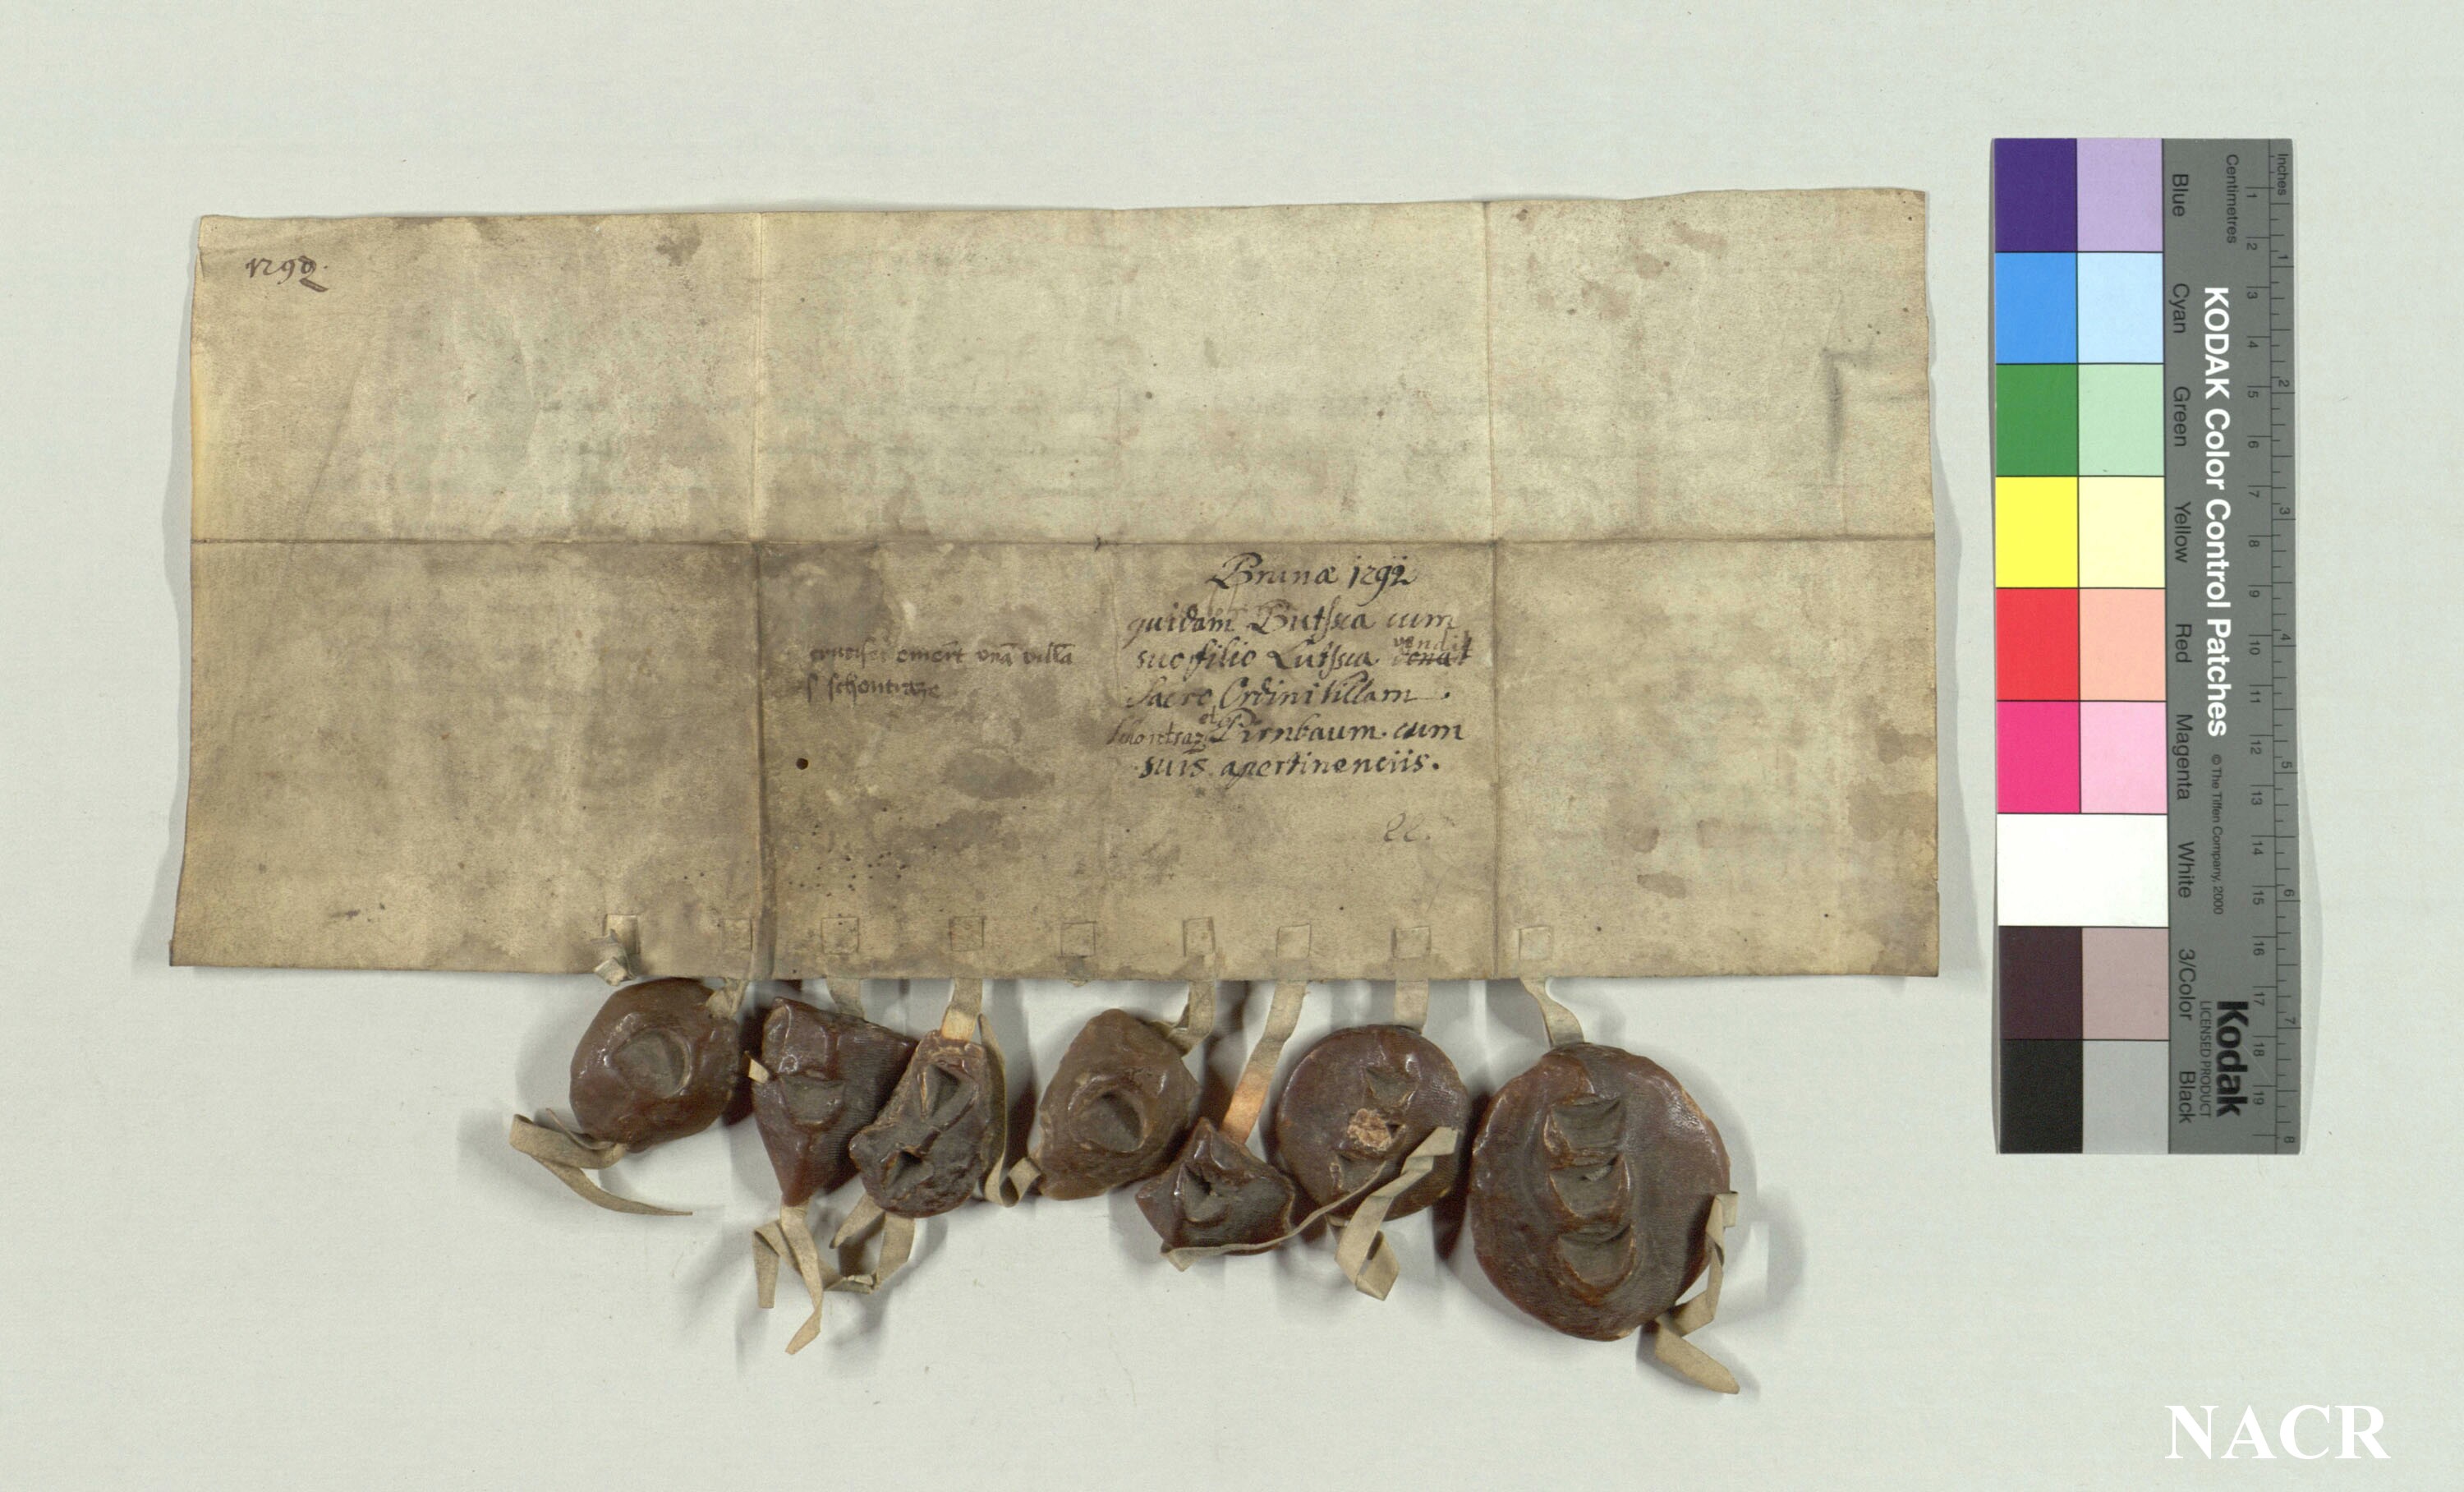 1292.
Brunæ 1292
quidam Butska cum
suo filio Lutska vendit
donat
Sacro Ordini Villam
et
Pirnbaum. cum
suis apertinenciis.
emert unā villā
schontraze
22.
Blue
Cyan
Green
Yellow
Red
Magenta
White
3/Color
Black
KODAK Color Control Patches © The Tiffen Company, 2000
Kodak
LICENSED PRODUCT
Centimetres
1 2 3 4 5 6 7 8 9 10 11 12 13 14 15 16 17 18 19
Inches
1 2 3 4 5 6 7 8
NACR